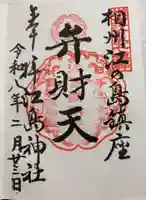 相州江の島鎮座
弁財天
奉拝 江島神社
令和八年二月廿三日